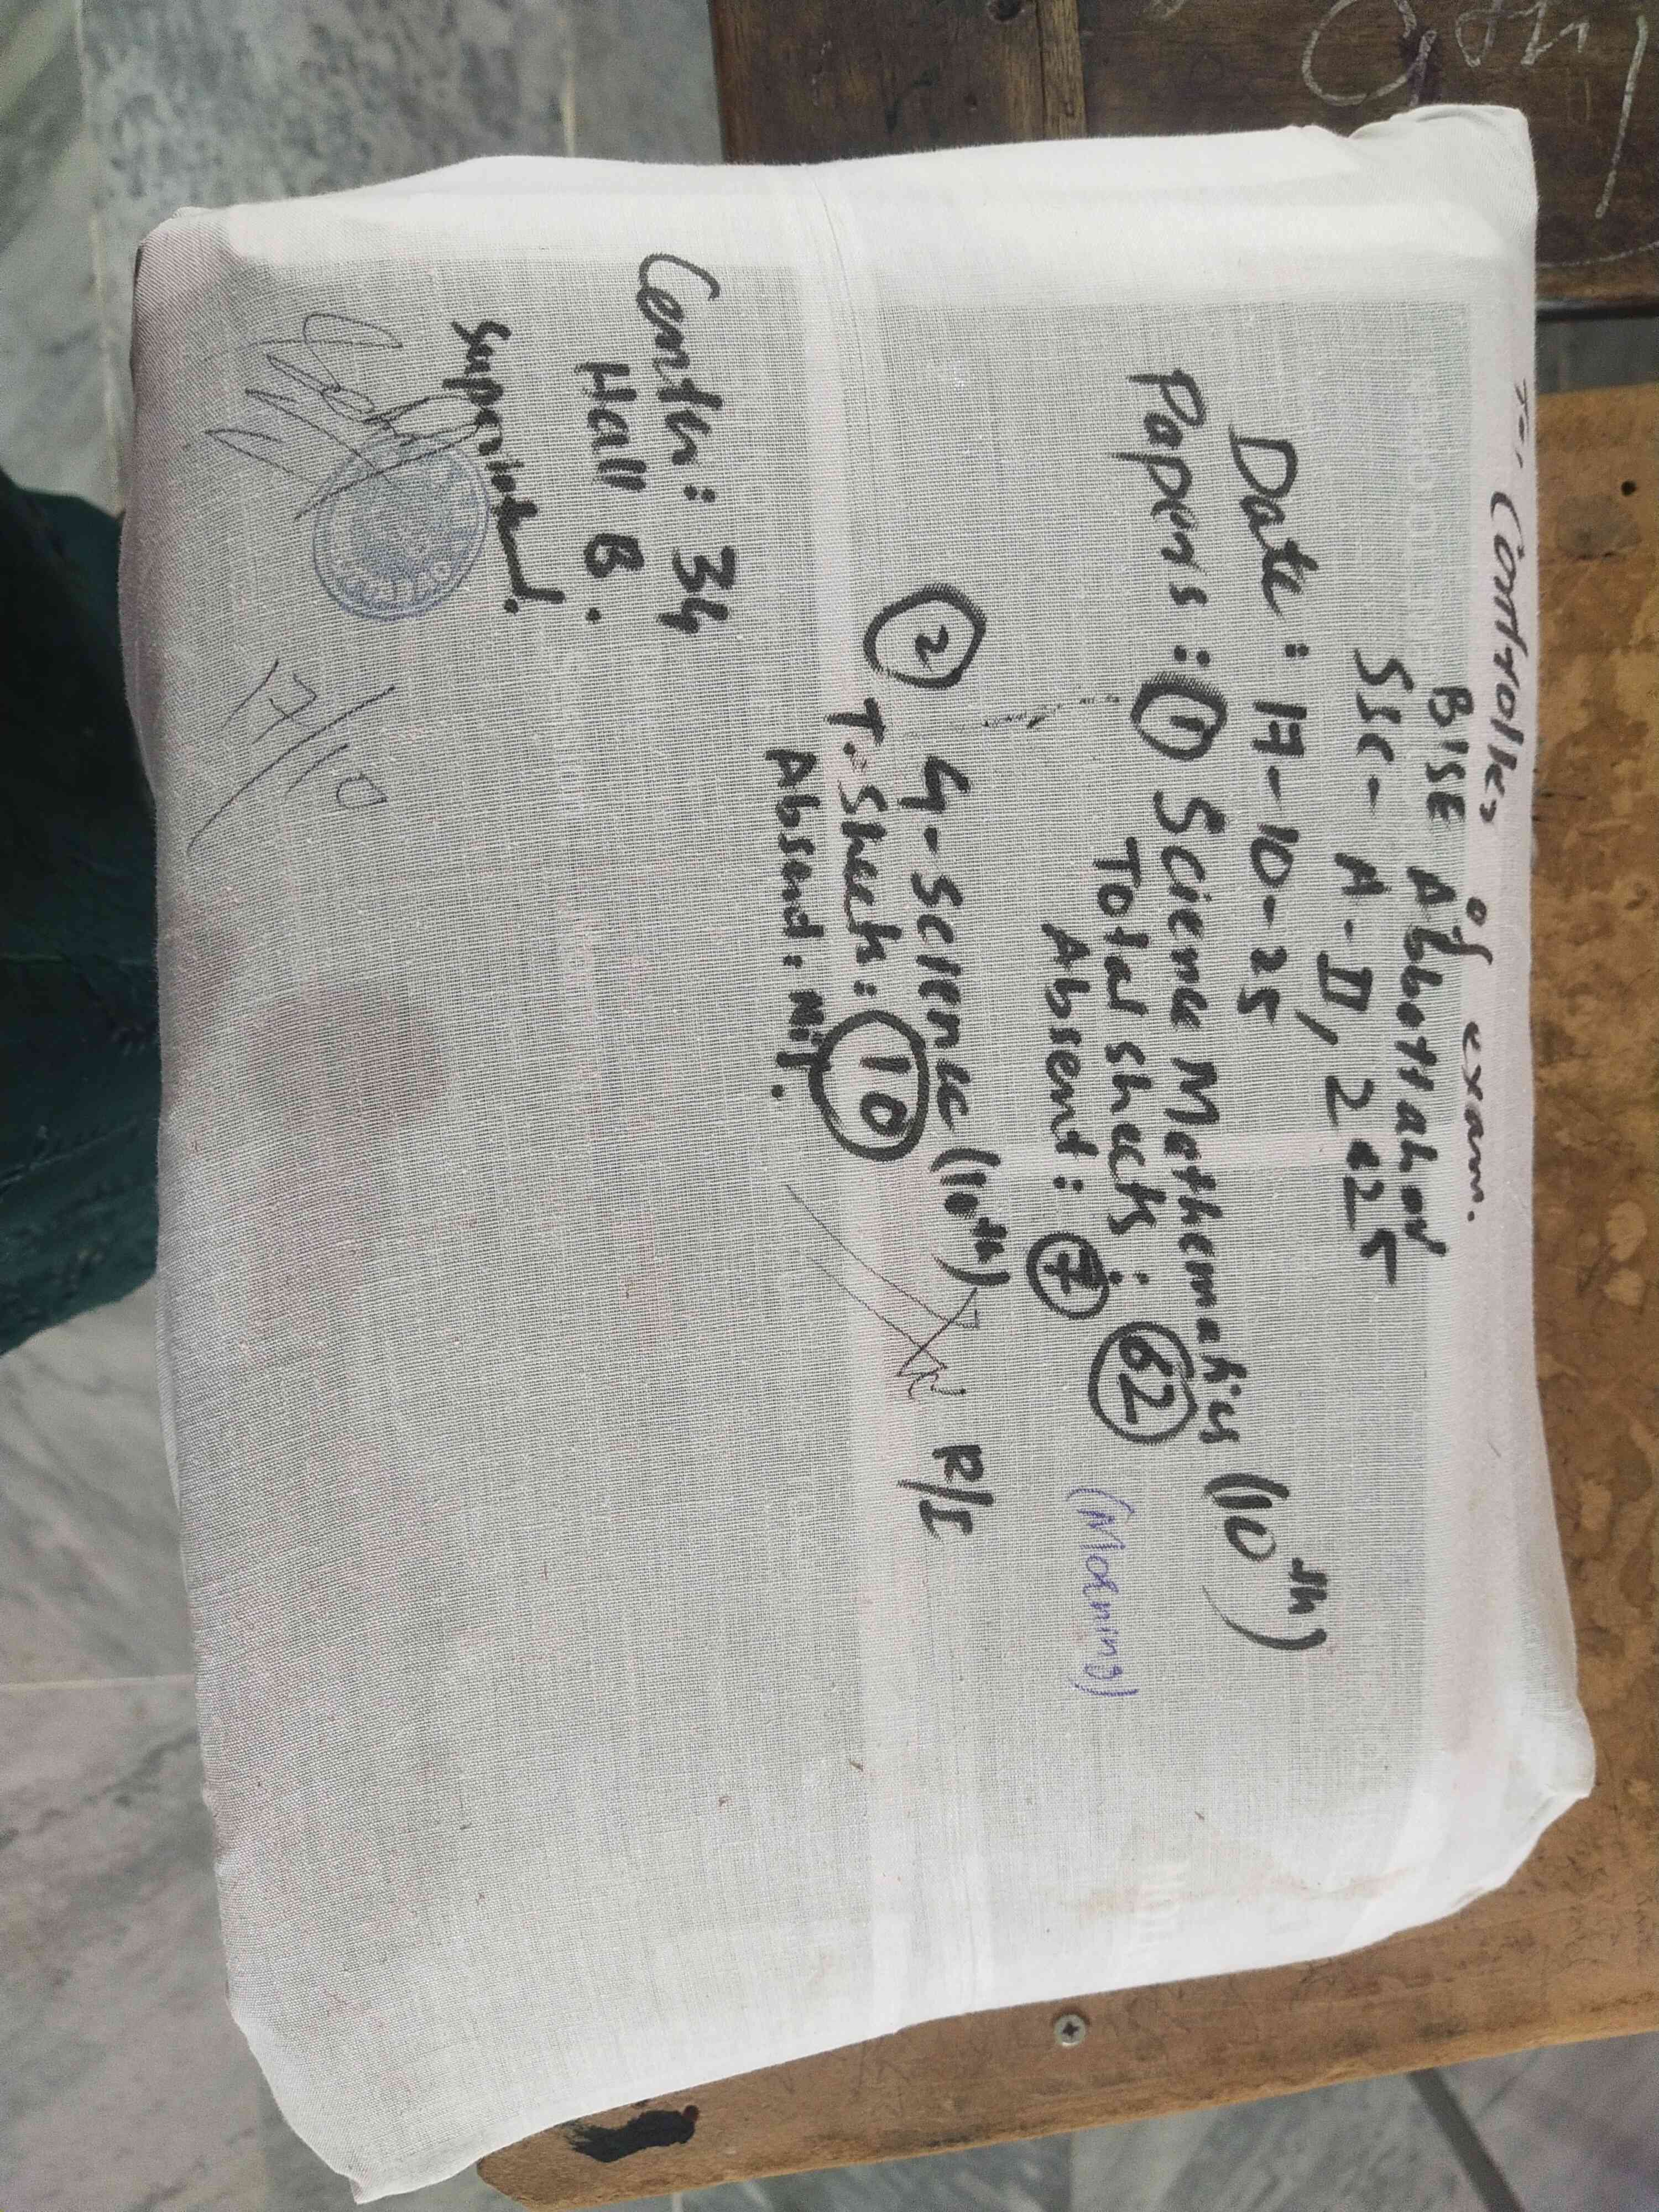 To, Controller of exam.
BISE Abbottabad
SSC- A-II, 2025
Date: 17-10-25
Papers: ① Science Mathematics (10th)
Total sheets: 62
Absent: 7
(Morning)
② G-Science (10th) R/I
T. Sheets: 10
Absent: Nil.
Center: 34
Hall B.
Superintend.
17/10